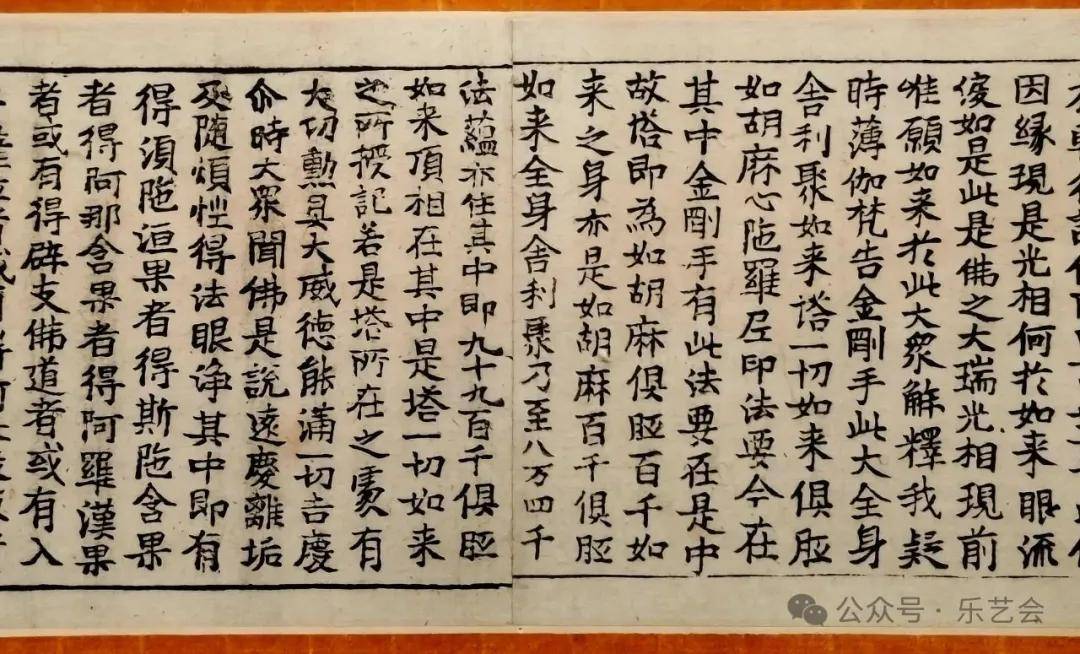 因縁現是光相何於如来眼流
復如是此是佛之大瑞光相現前
唯願如来於此大衆解釋我疑
時薄伽梵告金剛手此大全身
舎利聚如来塔一切如来俱胝
如胡麻心陁羅尼印法要今在
其中金剛手有此法要在是中
故塔即為如胡麻俱胝百千如
来之身亦是如胡麻百千俱胝
如来全身舎利聚乃至八万四千
法藴亦住其中即九十九百千俱胝
如来頂相在其中是塔一切如来
之所授記若是塔所在之處有
大功勳具大威德能满一切吉慶
尒時大衆聞佛是說遠慶離垢
及随煩惱得法眼浄其中即有
得湏陁洹果者得斯陁含果
者得阿那含果者得阿羅漢果
者或有得辟支佛道者或有入
公众号·乐艺会